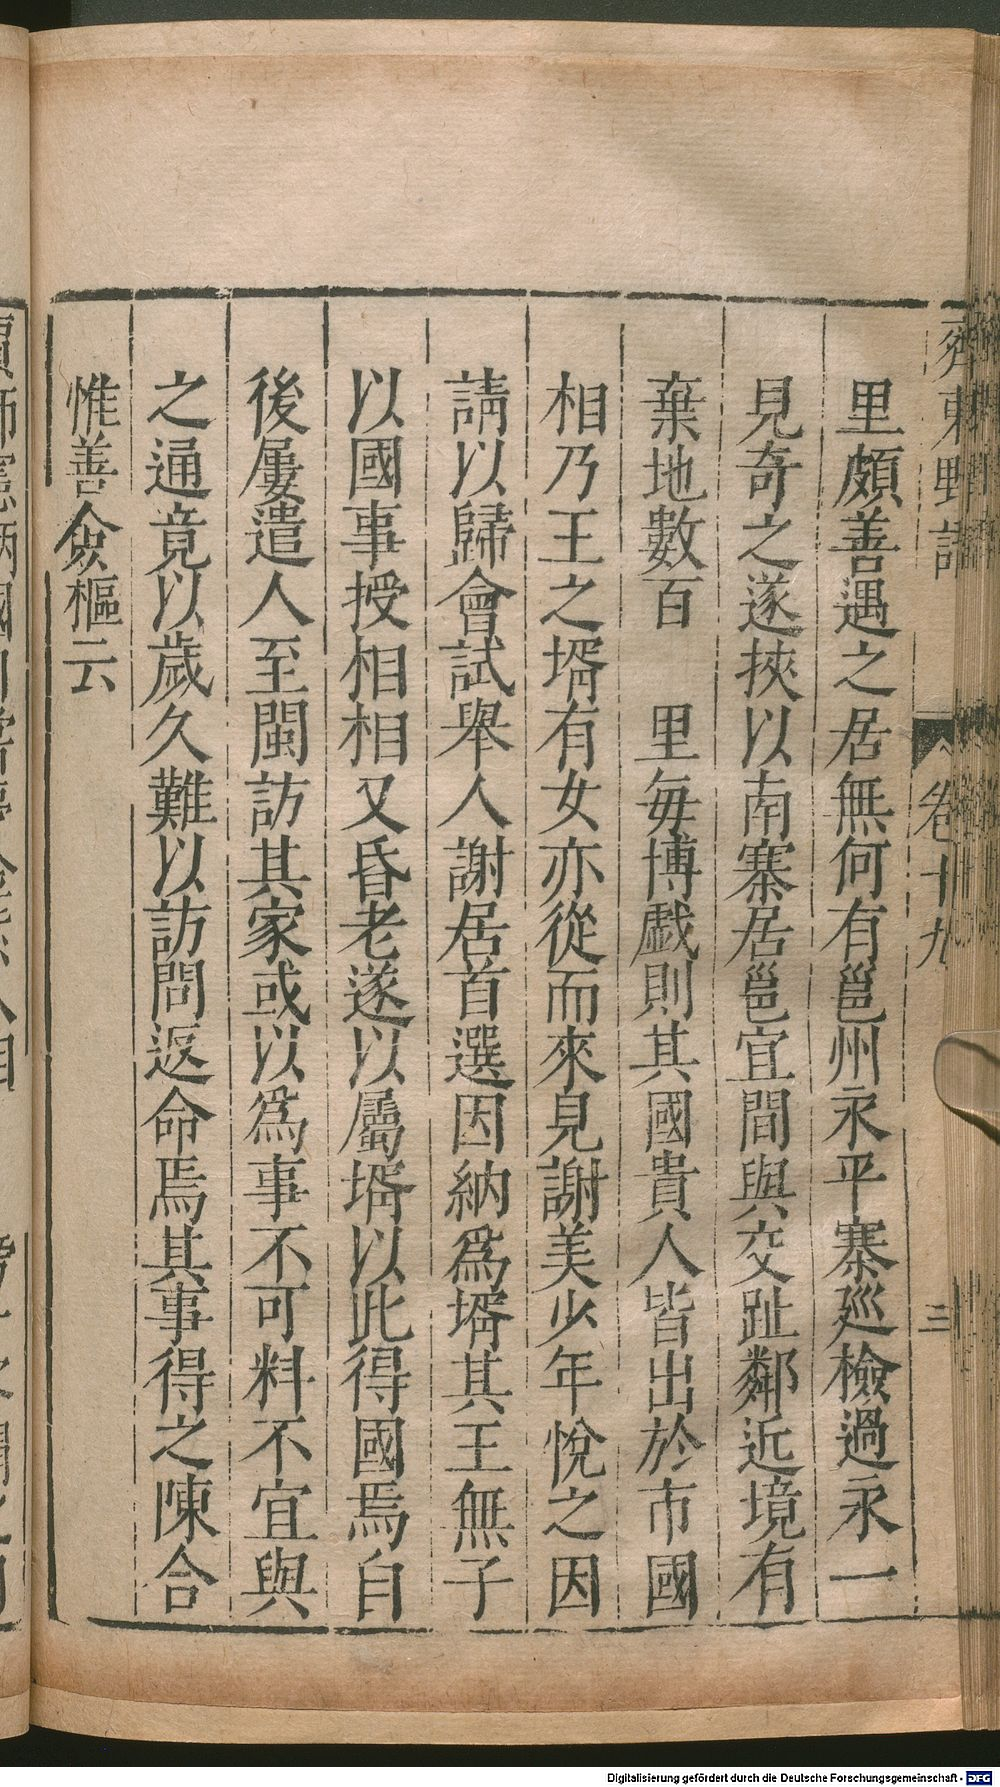 齊東野語 卷十九 三
里頗善遇之居無何有邕州永平寨廵檢過永一
見奇之遂挾以南寨居邕宜間與交趾鄰近境有
棄地數百 里毎博戲則其國貴人皆出於市國
相乃王之壻有女亦從而來見謝美少年悅之因
請以歸會試舉人謝居首選因納爲壻其王無子
以國事授相相又昏老遂以屬壻以此得國焉自
後屢遣人至閩訪其家或以爲事不可料不宜與
之通竟以歲久難以訪問返命焉其事得之陳合
惟善僉樞云
Digitalisierung gefördert durch die Deutsche Forschungsgemeinschaft - DFG